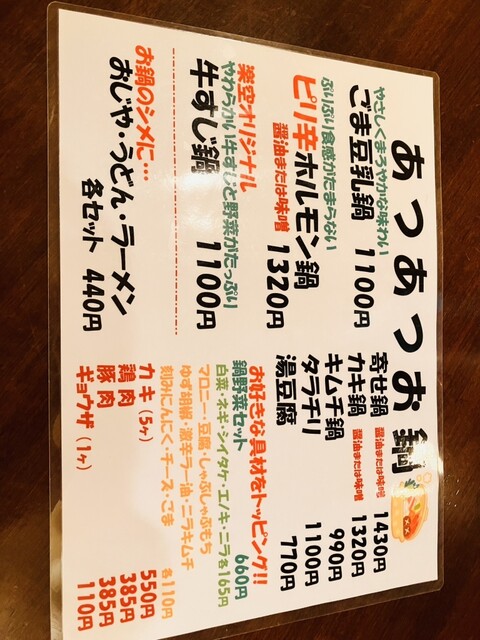 あつあつお鍋
やさしくまろやかな味わい
ごま豆乳鍋 1100円
ぷりぷり食感がたまらない
ピリ辛ホルモン鍋
醤油または味噌 1320円
楽空オリジナル
やわらかい牛すじと野菜がたっぷり
牛すじ鍋 1100円
お鍋のシメに…
おじや・うどん・ラーメン
各セット 440円
寄せ鍋 醤油または味噌 1430円
カキ鍋 醤油または味噌 1320円
キムチ鍋 990円
タラチリ 1100円
湯豆腐 770円
お好きな具材をトッピング!!
鍋野菜セット 660円
白菜・ネギ・シイタケ・エノキ・ニラ各165円
マロニー・豆腐・しゃぶしゃぶもち
ゆず胡椒・激辛ラー油・ニラキムチ
刻みにんにく・チーズ・ごま 各110円
カキ(5ヶ) 550円
鶏肉 385円
豚肉 385円
ギョウザ(1ヶ) 110円